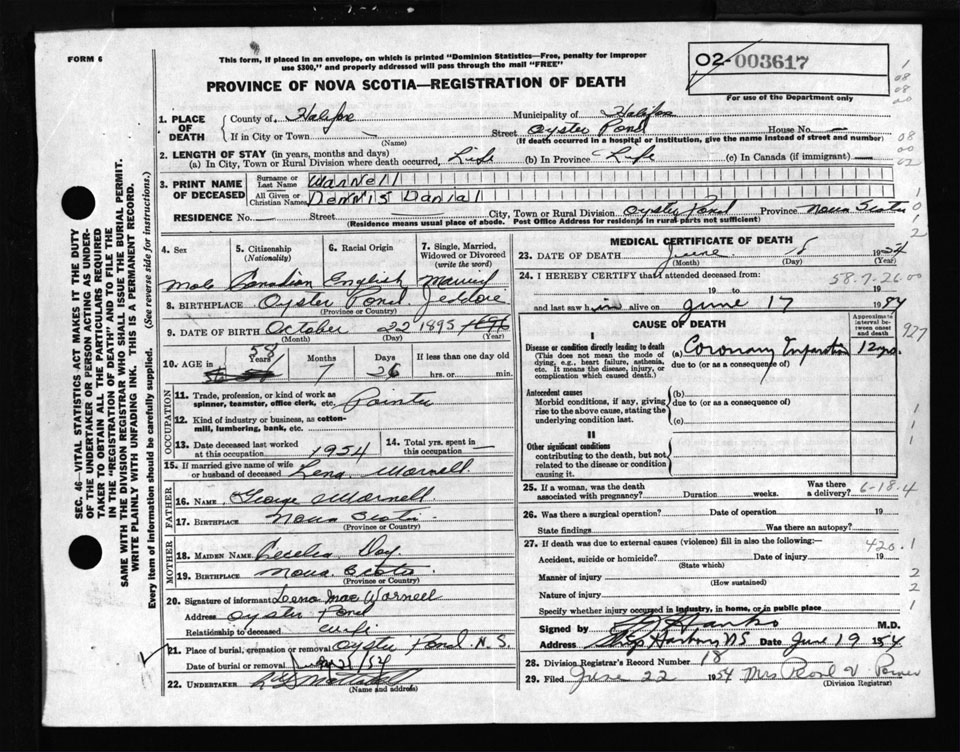 FORM 6
This form, if placed in an envelope, on which is printed "Dominion Statistics—Free, penalty for improper
use $300," and properly addressed will pass through the mail "FREE"
02-003617
For use of the Department only
PROVINCE OF NOVA SCOTIA—REGISTRATION OF DEATH
1. PLACE OF DEATH
County of Halifax
Municipality of Halifax
If in City or Town —
(Name)
Street Oyster Pond House No. —
(If death occurred in a hospital or institution, give the name instead of street and number)
2. LENGTH OF STAY (in years, months and days)
(a) In City, Town or Rural Division where death occurred, Life (b) In Province Life (c) In Canada (if immigrant) —
3. PRINT NAME OF DECEASED
Surname or Last Name Warnell
All Given or Christian Names Dennis Danial
RESIDENCE No. Street City, Town or Rural Division Oyster Pond Province Nova Scotia
(Residence means usual place of abode. Post Office Address for residents in rural parts not sufficient)
4. Sex
Male
5. Citizenship
(Nationality)
Canadian
6. Racial Origin
English
7. Single, Married,
Widowed or Divorced
(write the word)
Married
8. BIRTHPLACE Oyster Pond Jeddore
(Province or Country)
9. DATE OF BIRTH October 22 1895 1896
(Month) (Day) (Year)
10. AGE in 58 Years 7 Months 26 Days
If less than one day old
hrs. or min.
OCCUPATION
11. Trade, profession, or kind of work as
spinner, teamster, office clerk, etc. Painter
12. Kind of industry or business, as cotton-
mill, lumbering, bank, etc.
13. Date deceased last worked
at this occupation 1954
14. Total yrs. spent in
this occupation —
15. If married give name of wife
or husband of deceased Lena Warnell
FATHER
16. NAME George Warnell
17. BIRTHPLACE Nova Scotia
(Province or Country)
MOTHER
18. MAIDEN NAME Cecelia Day
19. BIRTHPLACE Nova Scotia
(Province or Country)
20. Signature of informant Leena Mae Warnell
Address Oyster Pond
Relationship to deceased wife
21. Place of burial, cremation or removal Oyster Pond N.S.
Date of burial or removal
22. UNDERTAKER
(Name and address)
MEDICAL CERTIFICATE OF DEATH
23. DATE OF DEATH June 18 1954
(Month) (Day) (Year)
24. I HEREBY CERTIFY that I attended deceased from:
58-7-26 00
19 to 19
and last saw him alive on June 17 1954
CAUSE OF DEATH
Approximate interval between onset and death
927
I
Disease or condition directly leading to death
(This does not mean the mode of
dying, e.g., heart failure, asthenia,
etc. It means the disease, injury, or
complication which caused death.)
(a) Coronary Infarction
due to (or as a consequence of)
Antecedent causes
Morbid conditions, if any, giving
rise to the above cause, stating the
underlying condition last.
(b)
due to (or as a consequence of)
(c)
II
Other significant conditions
contributing to the death, but not
related to the disease or condition
causing it.
25. If a woman, was the death
associated with pregnancy? Duration weeks. Was there
a delivery?
6-18-4
26. Was there a surgical operation? Date of operation 19
State findings Was there an autopsy?
27. If death was due to external causes (violence) fill in also the following:—
420.1
Accident, suicide or homicide? Date of injury 19
(State which)
Manner of injury
(How sustained)
Nature of injury
Specify whether injury occurred in industry, in home, or in public place
Signed by M.D.
Address Ship Harbour NS Date June 19 1954
28. Division Registrar's Record Number 18
29. Filed June 22 1954 Mrs Pearl V.
(Division Registrar)
SEC. 46—VITAL STATISTICS ACT MAKES IT THE DUTY
OF THE UNDERTAKER OR PERSON ACTING AS UNDER-
TAKER TO OBTAIN ALL THE PARTICULARS REQUIRED
IN THE "REGISTRATION OF DEATH" AND TO FILE THE
SAME WITH THE DIVISION REGISTRAR WHO SHALL ISSUE THE BURIAL PERMIT.
WRITE PLAINLY WITH UNFADING INK. THIS IS A PERMANENT RECORD.
Every item of information should be carefully supplied. (See reverse side for instructions.)